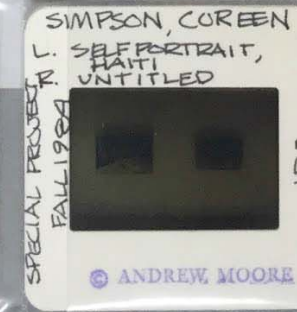 SIMPSON, COREEN
L. SELF PORTRAIT,
HAITI
R. UNTITLED
SPECIAL PROJECT
FALL 1984
© ANDREW MOORE